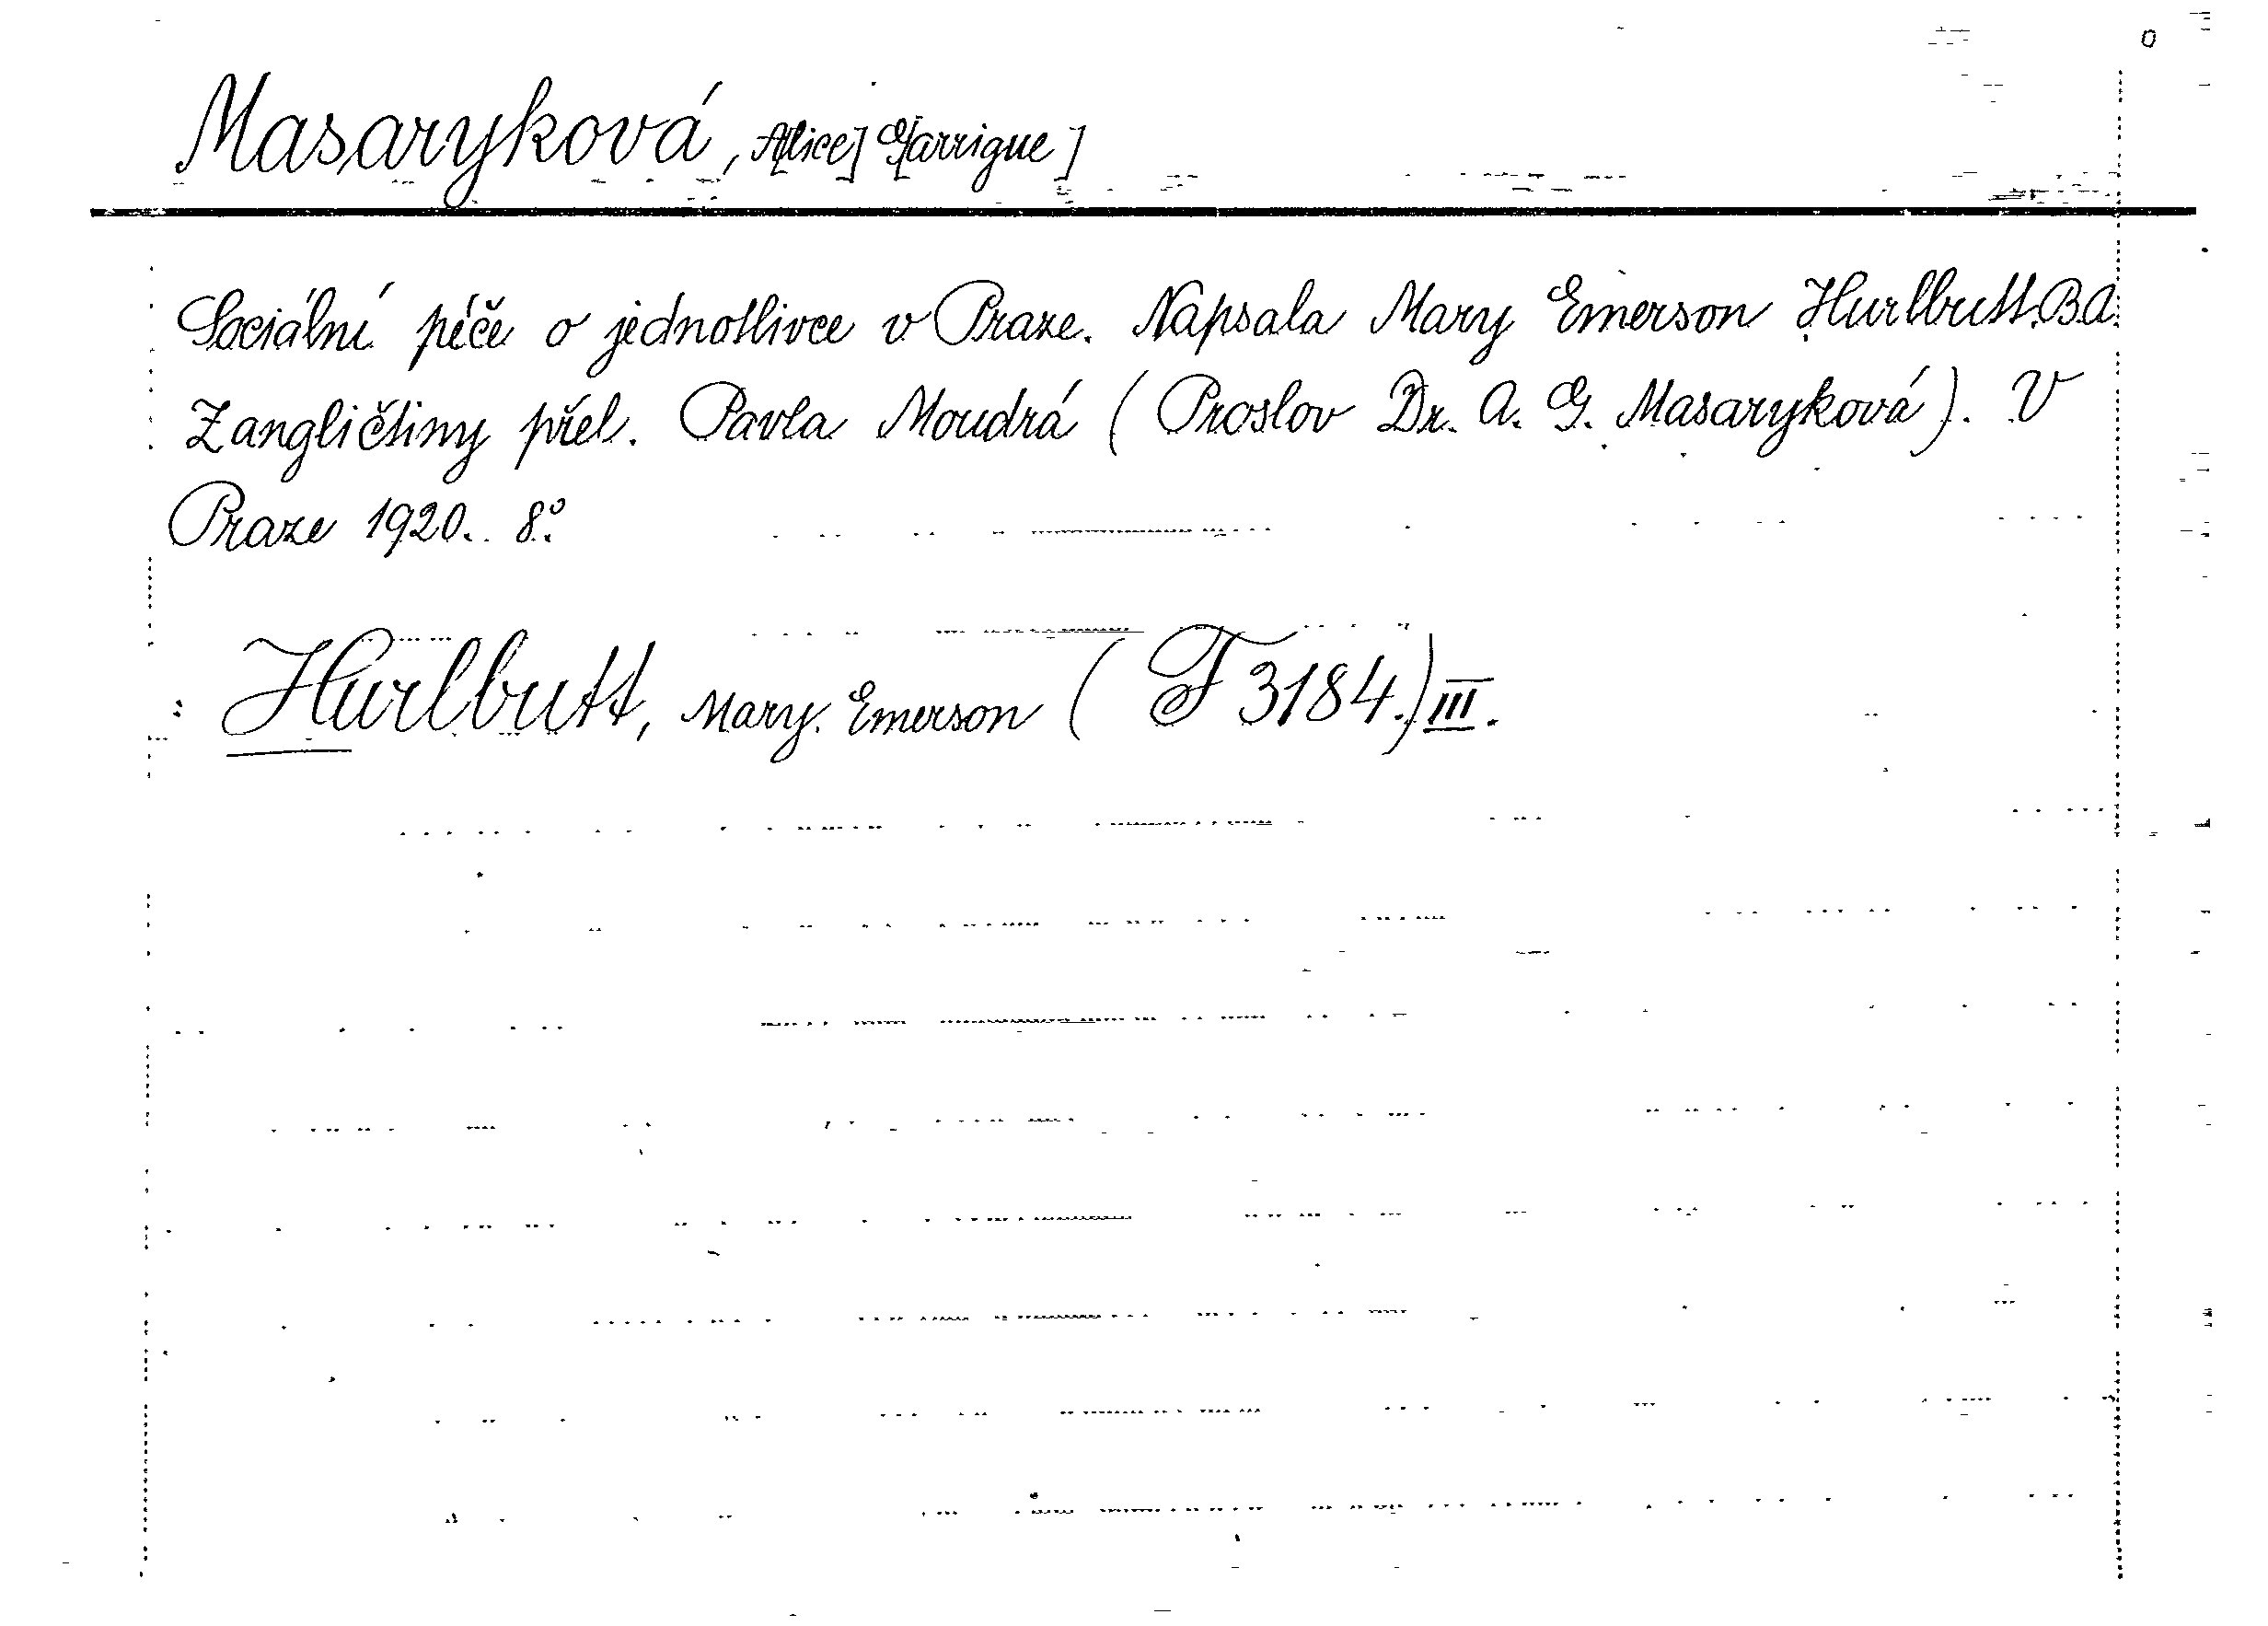 Masaryková, A[lice] G[arrigue]
Sociální péče o jednotlivce v Praze. Napsala Mary Emerson Hurlbutt B.A.
Z angličtiny přel. Pavla Moudrá (Proslov Dr. A. G. Masaryková). V
Praze 1920. 8º.
Hurlbutt, Mary Emerson (F 3184.) III.